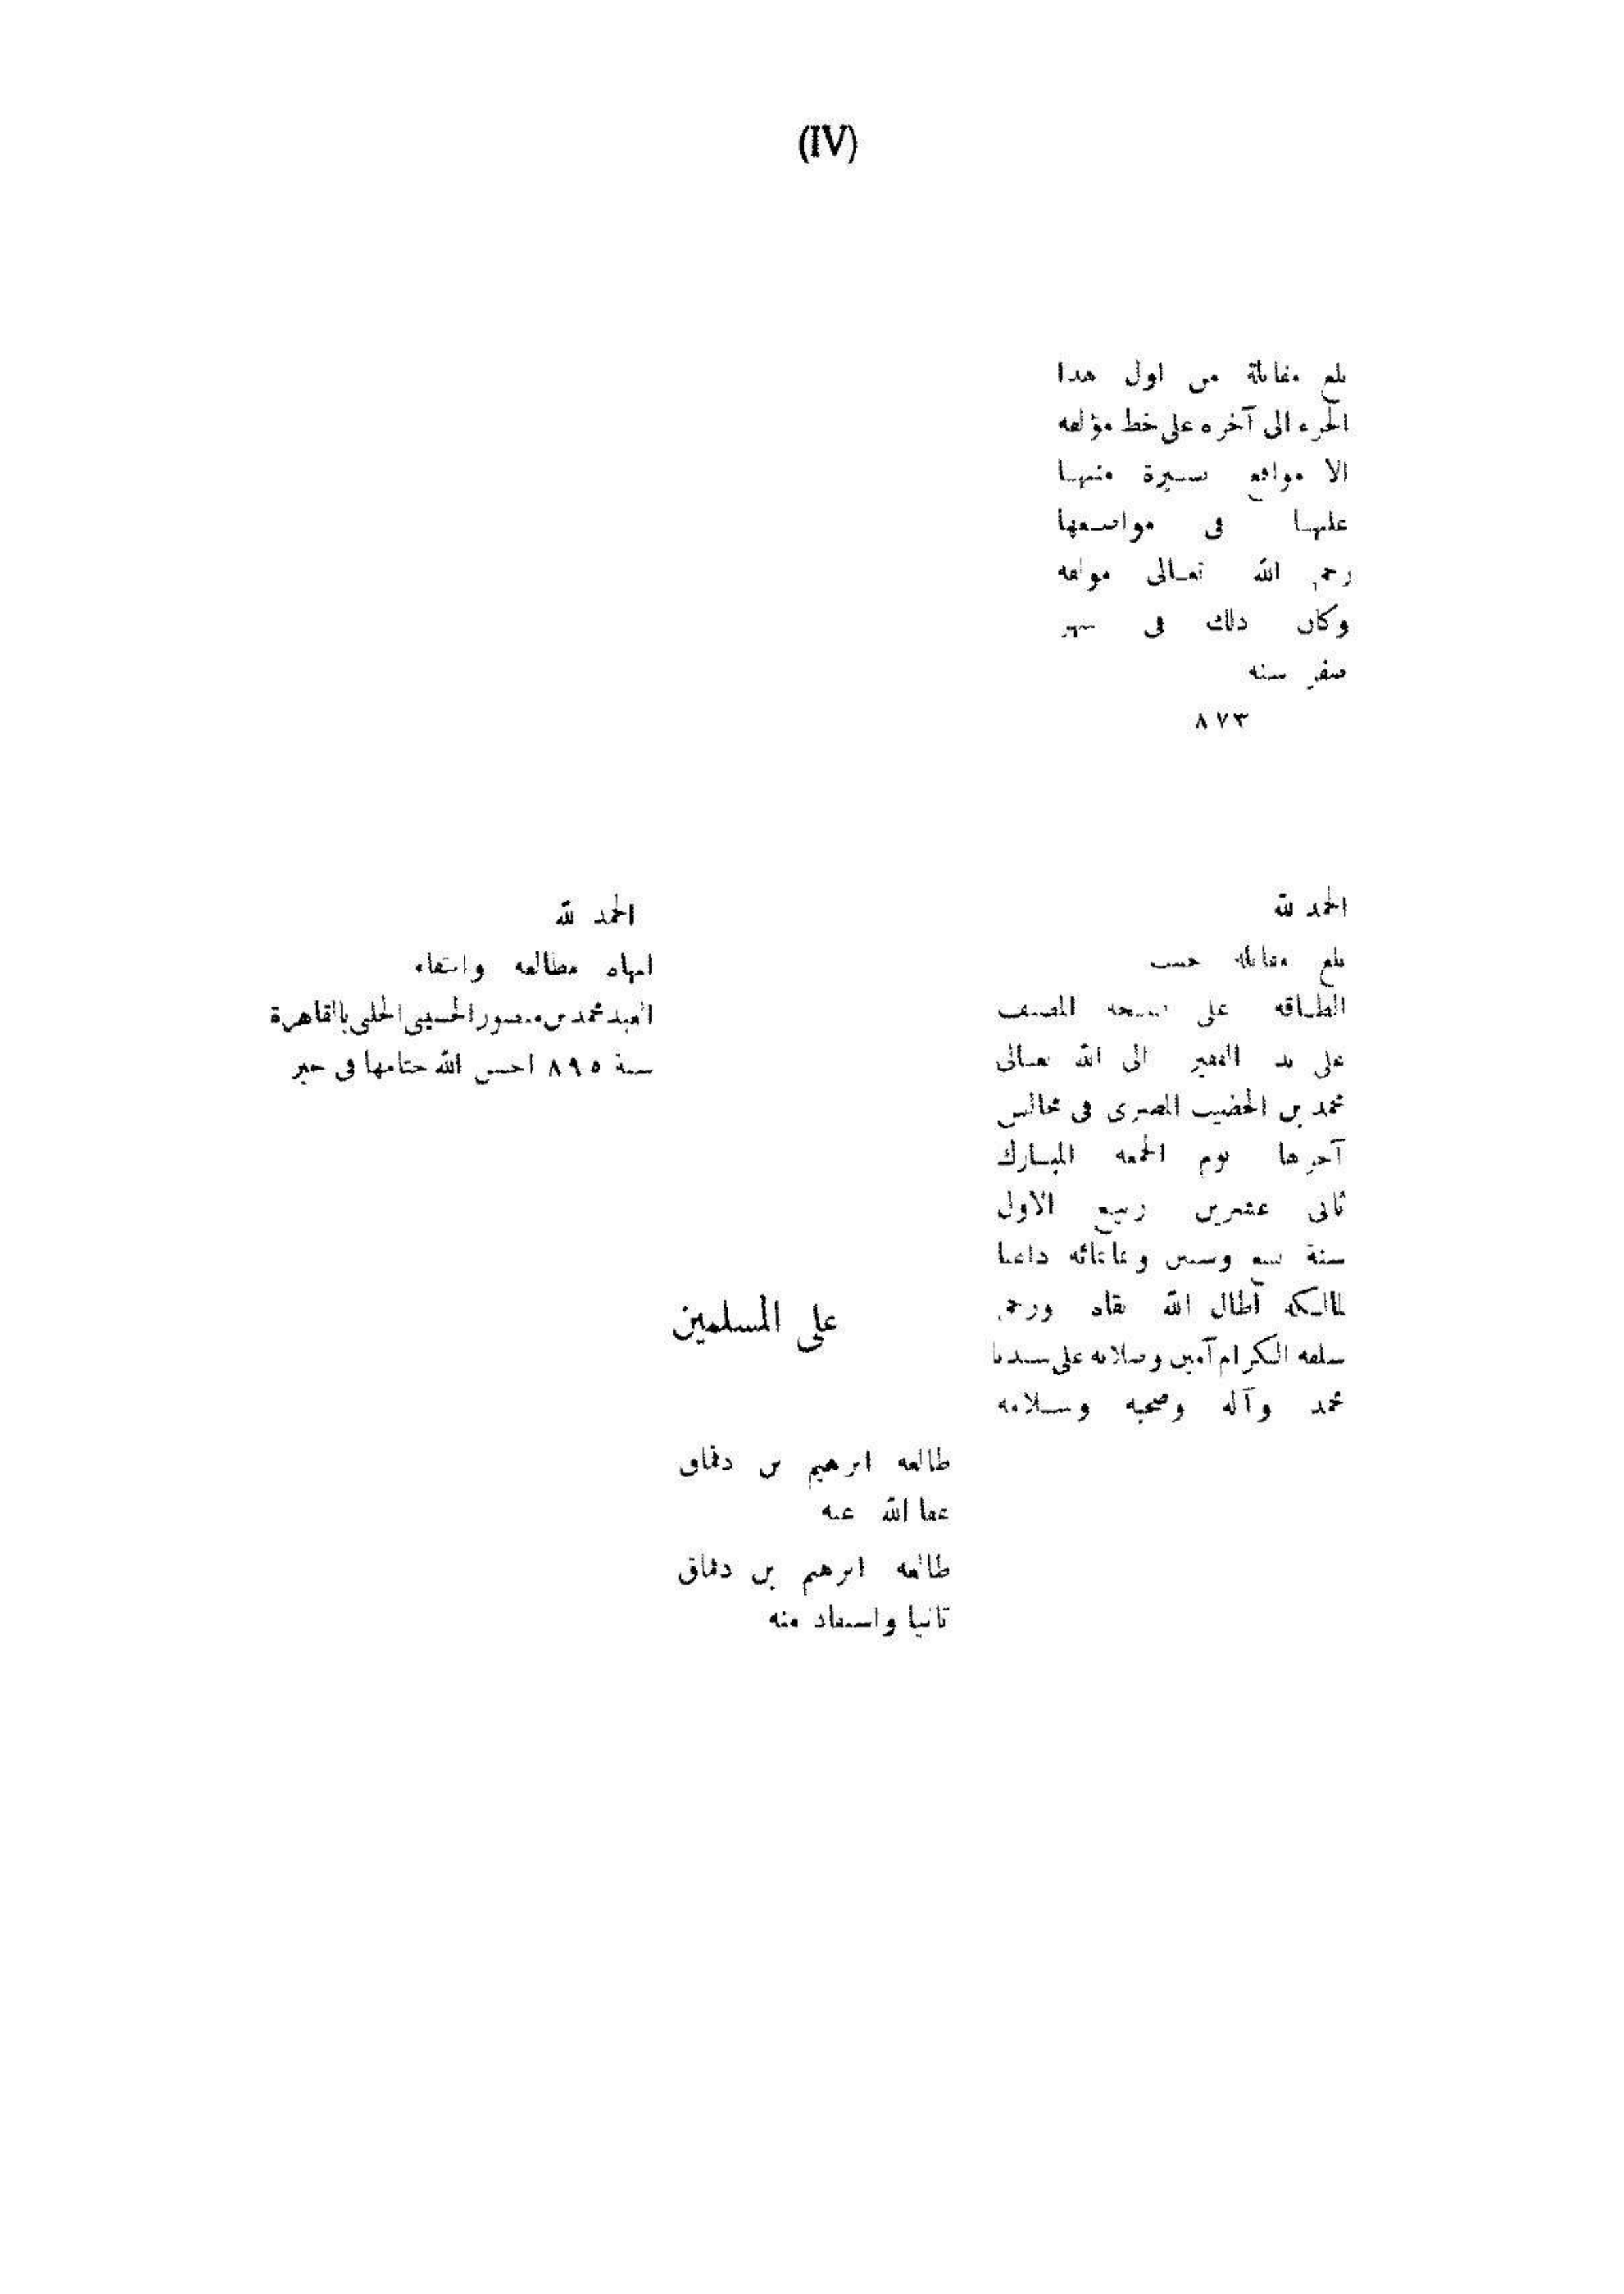 (IV)
بلغ مقابلة من اول هدا
الجزء الى آخره على خط مؤلفه
الا مواضع يسيرة منبها
عليها فى مواضعها
رحم الله تعالى مولفه
وكان دلك فى شهر
صفر سنه
٨٧٣
الحمد لله
بلغ مقابلة حسب
الطاقه على نسخه المصنف
على يد الفقير الى الله تعالى
محمد بن الخضيب المصرى فى مجالس
آخرها يوم الجمعه المبارك
ثانى عشرين ربيع الاول
سنة وثمانمائه داعيا
لمالكه أطال الله بقاه ورحم
سلفه الكرام آمين وصلاته على سيدنا
محمد وآله وصحبه وسلامه
الحمد لله
انهاه مطالعه وانتقاء
العبد محمد بن منصور الحسينى الحلبى بالقاهرة
سنة ٨٩٥ احسن الله ختامها فى خير
على المسلمين
طالعه ابرهيم بن دقماق
عفا الله عنه
طالعه ابرهيم بن دقماق
ثانيا واستفاد منه